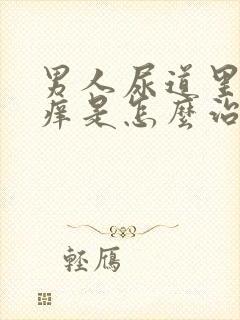 男人尿道里
痒是怎麼治
輕鴈